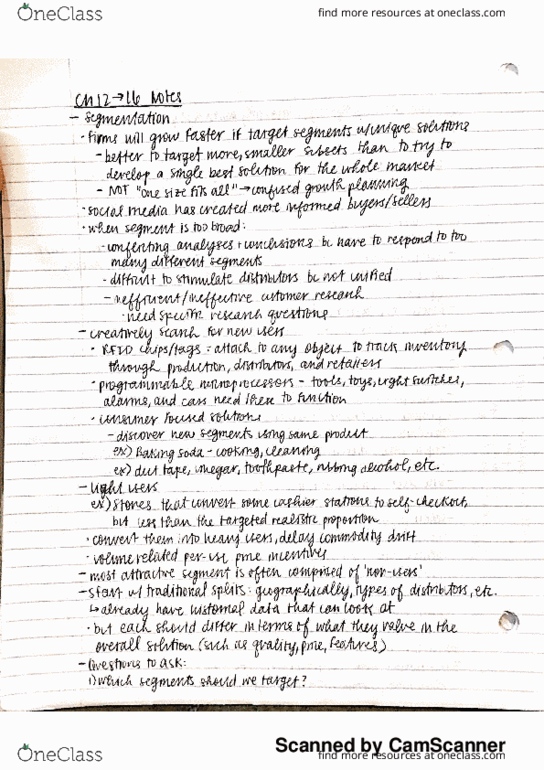 OneClass
find more resources at oneclass.com
Ch 12→16 Notes
- Segmentation
· Firms will grow faster if target segments w/unique solutions
- better to target more, smaller subsets than to try to
develop a single best solution for the whole market
- NOT "one size fits all" → confused growth planning
· social media has created more informed buyers/sellers
· when segment is too broad:
- conflicting analyses + conclusions bc have to respond to too
many different segments
- difficult to stimulate distributors bc not unified
- inefficient/ineffective customer research
· need specific research questions
- creatively search for new users
· RFID chips/tags: attach to any object to track inventory
through production, distributors, and retailers
· programmable microprocessors - tools, toys, light switches,
alarms, and cars need these to function
· consumer focused solutions
- discover new segments using same product
ex) Baking soda - cooking, cleaning
ex) duct tape, vinegar, toothpaste, rubbing alcohol, etc.
- Light users
ex) Stores that convert some cashier stations to self-checkout,
but less than the targeted realistic proportion
· convert them into heavy users, delay commodity drift
· volume related per-use price incentives
- most attractive segment is often comprised of 'non-users'
- start w/ traditional splits: geographically, types of distributors, etc.
↳ already have customer data that can look at
· but each should differ in terms of what they value in the
overall solution (such as quality, price, features)
- Questions to ask:
1) which segments should we target?
Scanned by CamScanner
OneClass
find more resources at oneclass.com